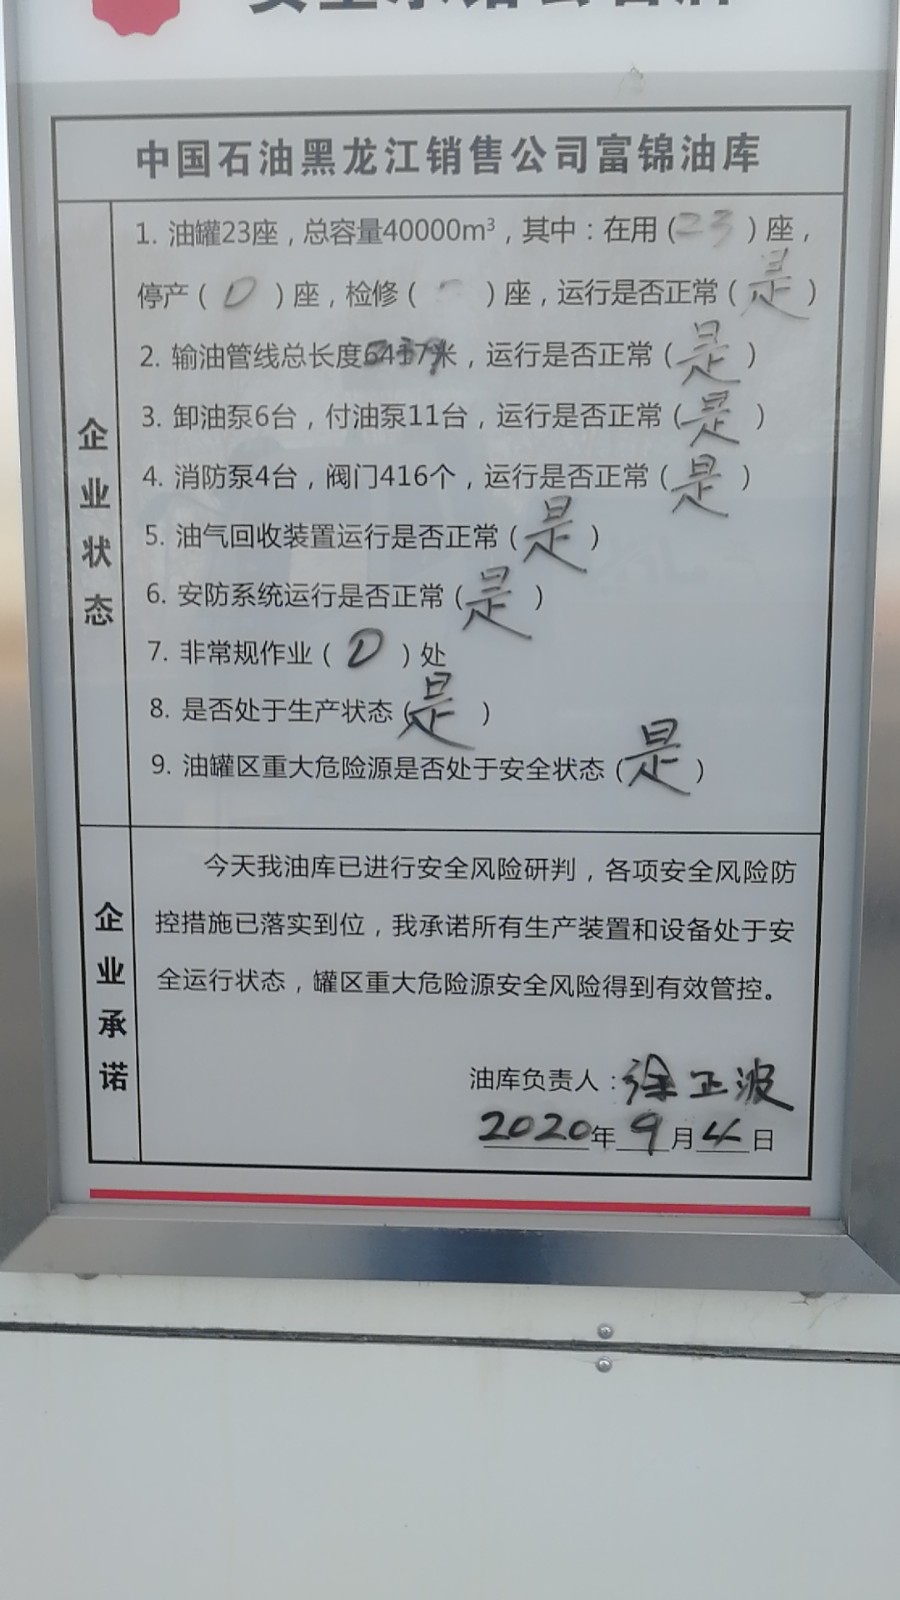 安全承诺公告牌
中国石油黑龙江销售公司富锦油库
企业状态
1. 油罐23座，总容量40000m³，其中：在用（23）座，
停产（0）座，检修（-）座，运行是否正常（是）
2. 输油管线总长度米，运行是否正常（是）
3. 卸油泵6台，付油泵11台，运行是否正常（是）
4. 消防泵4台，阀门416个，运行是否正常（是）
5. 油气回收装置运行是否正常（是）
6. 安防系统运行是否正常（是）
7. 非常规作业（0）处
8. 是否处于生产状态（是）
9. 油罐区重大危险源是否处于安全状态（是）
企业承诺
今天我油库已进行安全风险研判，各项安全风险防
控措施已落实到位，我承诺所有生产装置和设备处于安
全运行状态，罐区重大危险源安全风险得到有效管控。
油库负责人：徐正波
2020年9月4日